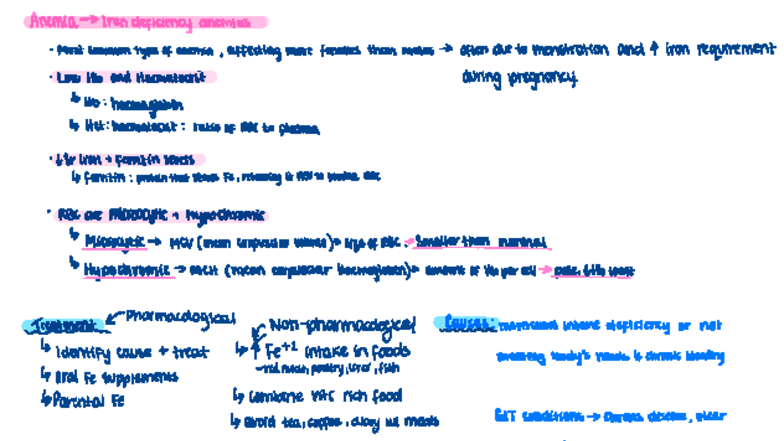 Anemia → Iron deficiency anemias
· Most common type of anemia, affecting more females than males → often due to menstration and ↑ iron requirement during pregnancy
· Low Hb and Haematocrit
↳ Hb: haemoglobin
↳ Hct: haematocrit: ratio of RBC to plasma
· iron + Ferritin levels
↳ ferritin: protein that stores Fe, releasing it
· RBC are Microcytic + Hypochromic
↳ Microcytic → MCV (mean corpuscular volume)→ size of RBC → Smaller than normal
↳ Hypochromic → MCH (mean corpuscular haemoglobin)→ amount of Hb per cell → pale
Treatment ↙ Pharmacological
↳ Identify cause + treat
↳ Oral Fe supplements
↳ Parental Fe
Non-pharmacological
↳ ↑ Fe⁺² intake in foods
→ red meat, poultry, liver, fish
↳ Combine Vitc rich food
↳ avoid tea, coffee, w/ meals
Causes: nutritional intake deficiency or not
meeting body's needs & chronic bleeding
GIT conditions → disease, ulcer